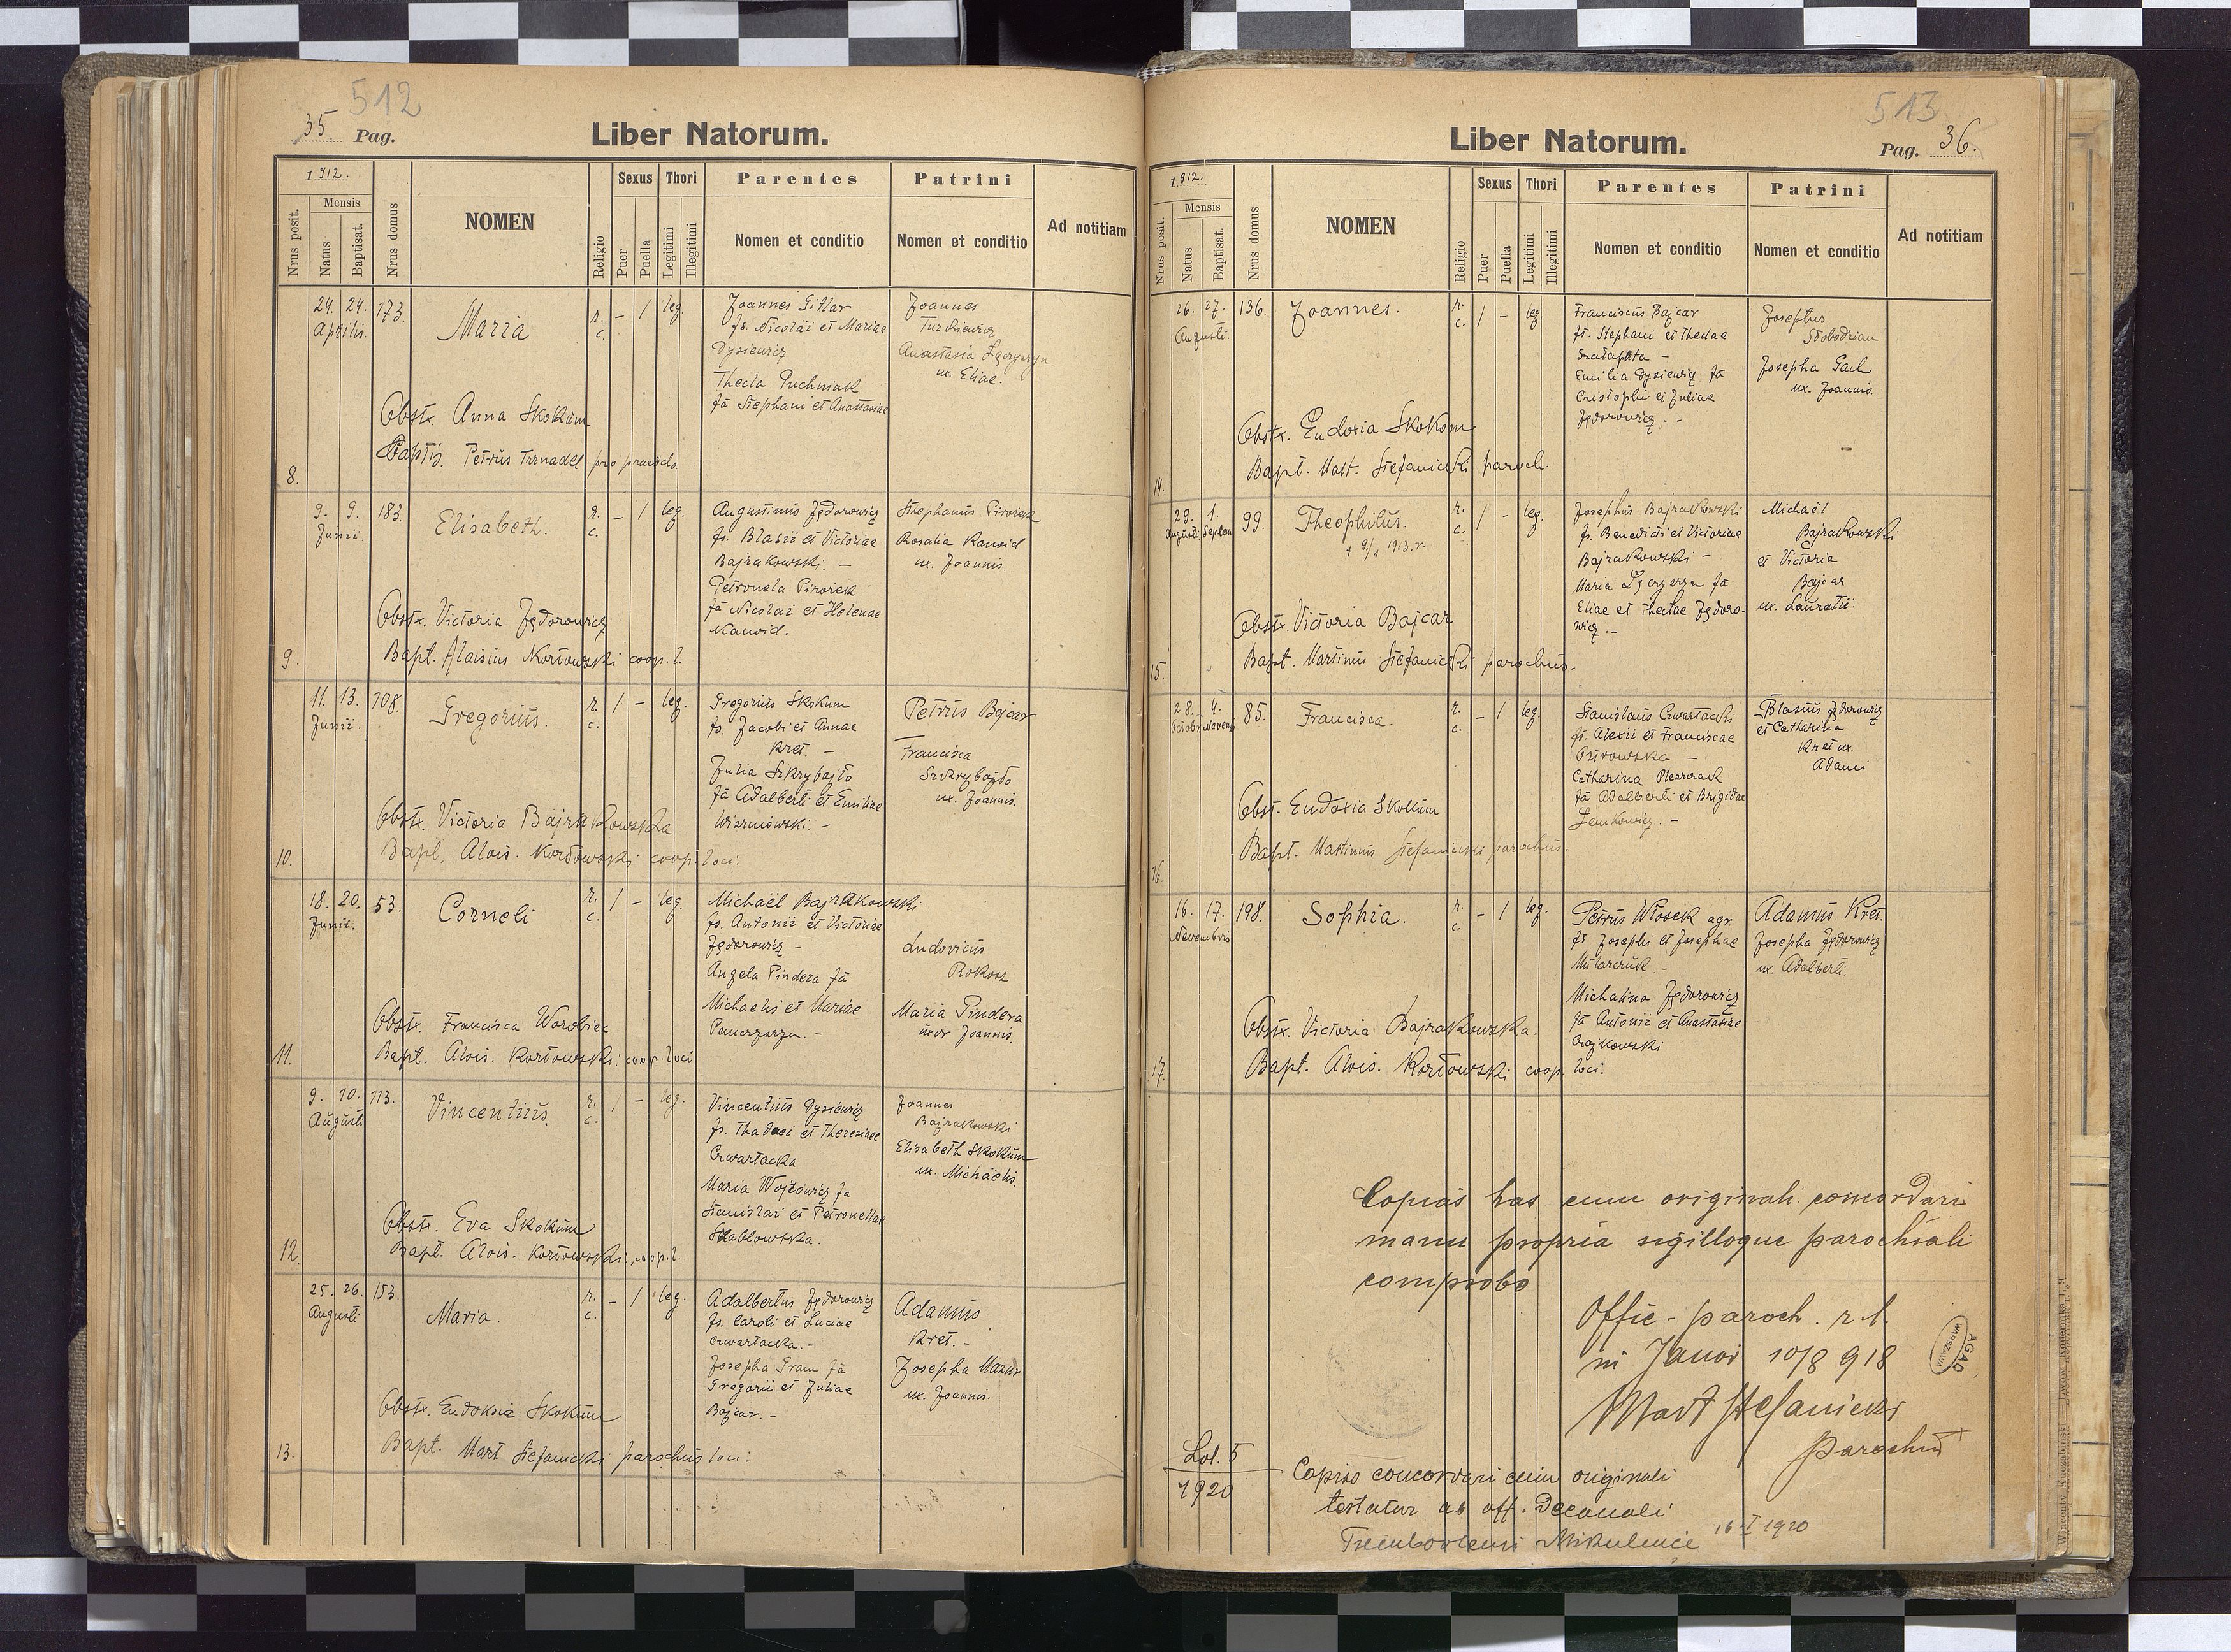 512
35. Pag.
Liber Natorum.
1912.
Nrus posit.
Mensis
Natus
Baptisat.
Nrus domus
NOMEN
Religio
Sexus
Puer
Puella
Thori
Legitimi
Illegitimi
Parentes
Nomen et conditio
Patrini
Nomen et conditio
Ad notitiam
24. 24. 173. Maria r. - 1 leg. Joannes Gitlar Joannes
Aprilis. c. fs. Nicolai et Mariae
Dysiewicz Anastasia
Thecla Puchniak ux. Eliae.
fa Stephani et Anastasiae
Obstx. Anna Skokum
Baptis. Petrus Ternadel pro parocho.
8.
9. 9. 183. Elisabeth. r. - 1 leg. Augustinus Jędorowicz Stephanus Pirożek
Junii. c. fs. Blasii et Victoriae Rosalia Kanoid
Bajrakowski. - ux. Joannis.
Petronela Pirożek
fa Nicolai et Helenae
Kanoid.
Obstx. Victoria Jędorowicz
9. Bapt. Aloisius Kozłowski coop. l.
11. 13. 108. Gregorius. r. 1 - leg. Gregorius Skokum Petrus Bajcar
Junii. c. fs. Jacobi et Annae
Kret. - Francisca
Julia Szkrybajło Szkrybajło
fa Adalberti et Emiliae ux. Joannis.
Wiszniowski. -
Obstx. Victoria Bajrakowska
10. Bapt. Alois. Kozłowski coop. loci.
18. 20. 53. Corneli r. 1 - leg. Michaël Bajrakowski
Junii. c. fs. Antonii et Victoriae
Jędorowicz - Ludovicus
Angela Pindera fa Rokosz
Michaelis et Mariae Maria Pindera
uxor Joannis.
Obstx. Francisca Worobiec
11. Bapt. Alois. Kozłowski coop. loci
9. 10. 113. Vincentius. r. 1 - leg. Vincentius Dysiewicz Joannes
Augusti c. fs. Thadaei et Theresiae Bajrakowski
Czwartacka Elisabeth Skokum
Maria Wojtowicz fa ux. Michaelis.
Stanislai et Petronellae
Skablowska.
Obstx. Eva Skokum
12. Bapt. Alois. Kozłowski coop. l.
25. 26. 153. Maria. r. - 1 leg. Adalbertus Jędorowicz Adamus
Augusti c. fs. Caroli et Luciae Kret. -
Czwartacka. - Josepha Mazur
Josepha Gram fa ux. Joannis.
Gregorii et Juliae
Bajcar. -
Obstx. Eudoksia Skokum
13. Bapt. Mart Stefanicki parochus loci:
513
Liber Natorum.
Pag. 36.
1912.
Nrus posit.
Mensis
Natus
Baptisat.
Nrus domus
NOMEN
Religio
Sexus
Puer
Puella
Thori
Legitimi
Illegitimi
Parentes
Nomen et conditio
Patrini
Nomen et conditio
Ad notitiam
26. 27. 136. Joannes. r. 1 - leg. Franciscus Bajcar Josephus
Augusti. c. fs. Stephani et Theclae Słobodzian
Josepha Gach
Emilia Dysiewicz fa ux. Joannis.
Cristophi et Juliae
Jędorowicz. -
Obstx. Eudoxia Skokum
Bapt. Mart. Stefanicki paroch.
14.
29. 1. 99. Theophilus. r. 1 - leg. Josephus Bajrakowski Michaël
Augusti Septem c. fs. Benedicti et Victoriae Bajrakowski
+ 9/1 1913.r. Bajrakowski - et Victoria
Maria fa Bajcar
Eliae et Theclae Jędoro- ux. Laurentii.
wicz. -
Obstx. Victoria Bajcar
15. Bapt. Martinus Stefanicki parochus.
28. 4. 85. Francisca. r. - 1 leg. Stanislaus Czwartacki Blasius Jędorowicz
Octobr. Novemb c. fs. Alexii et Franciscae et Catharina
Ostrowska - Kret ux.
Catharina Adami
fa Adalberti et Brigidae
Jemkowicz. -
Obst. Eudoxia Skokum
Bapt. Martinus Stefanicki parochus.
16.
16. 17. 198. Sophia. r. - 1 leg. Petrus Włosek agr. Adamus Kret.
Novembris c. fs Josephi et Josephae Josepha Jędorowicz
Mularczuk. - ux. Adalberti.
Michalina Jędorowicz
fa Antonii et Anastasiae
Czajkowski
Obstx. Victoria Bajrakowska.
17. Bapt. Alois. Kozłowski coop. loci.
Copias has cum originali concordari
manu propria sigilloque parochiali
comprobo
Offic- paroch. r. l.
in Janov 10/8 918
Mart Stefanicki
Parochus
AGAD
WARSZAWA
Lol. 5
1920
Copias concordari cum originali
testatur ab off. Decanali
Trembowlensi Mikulince 16 I 1920